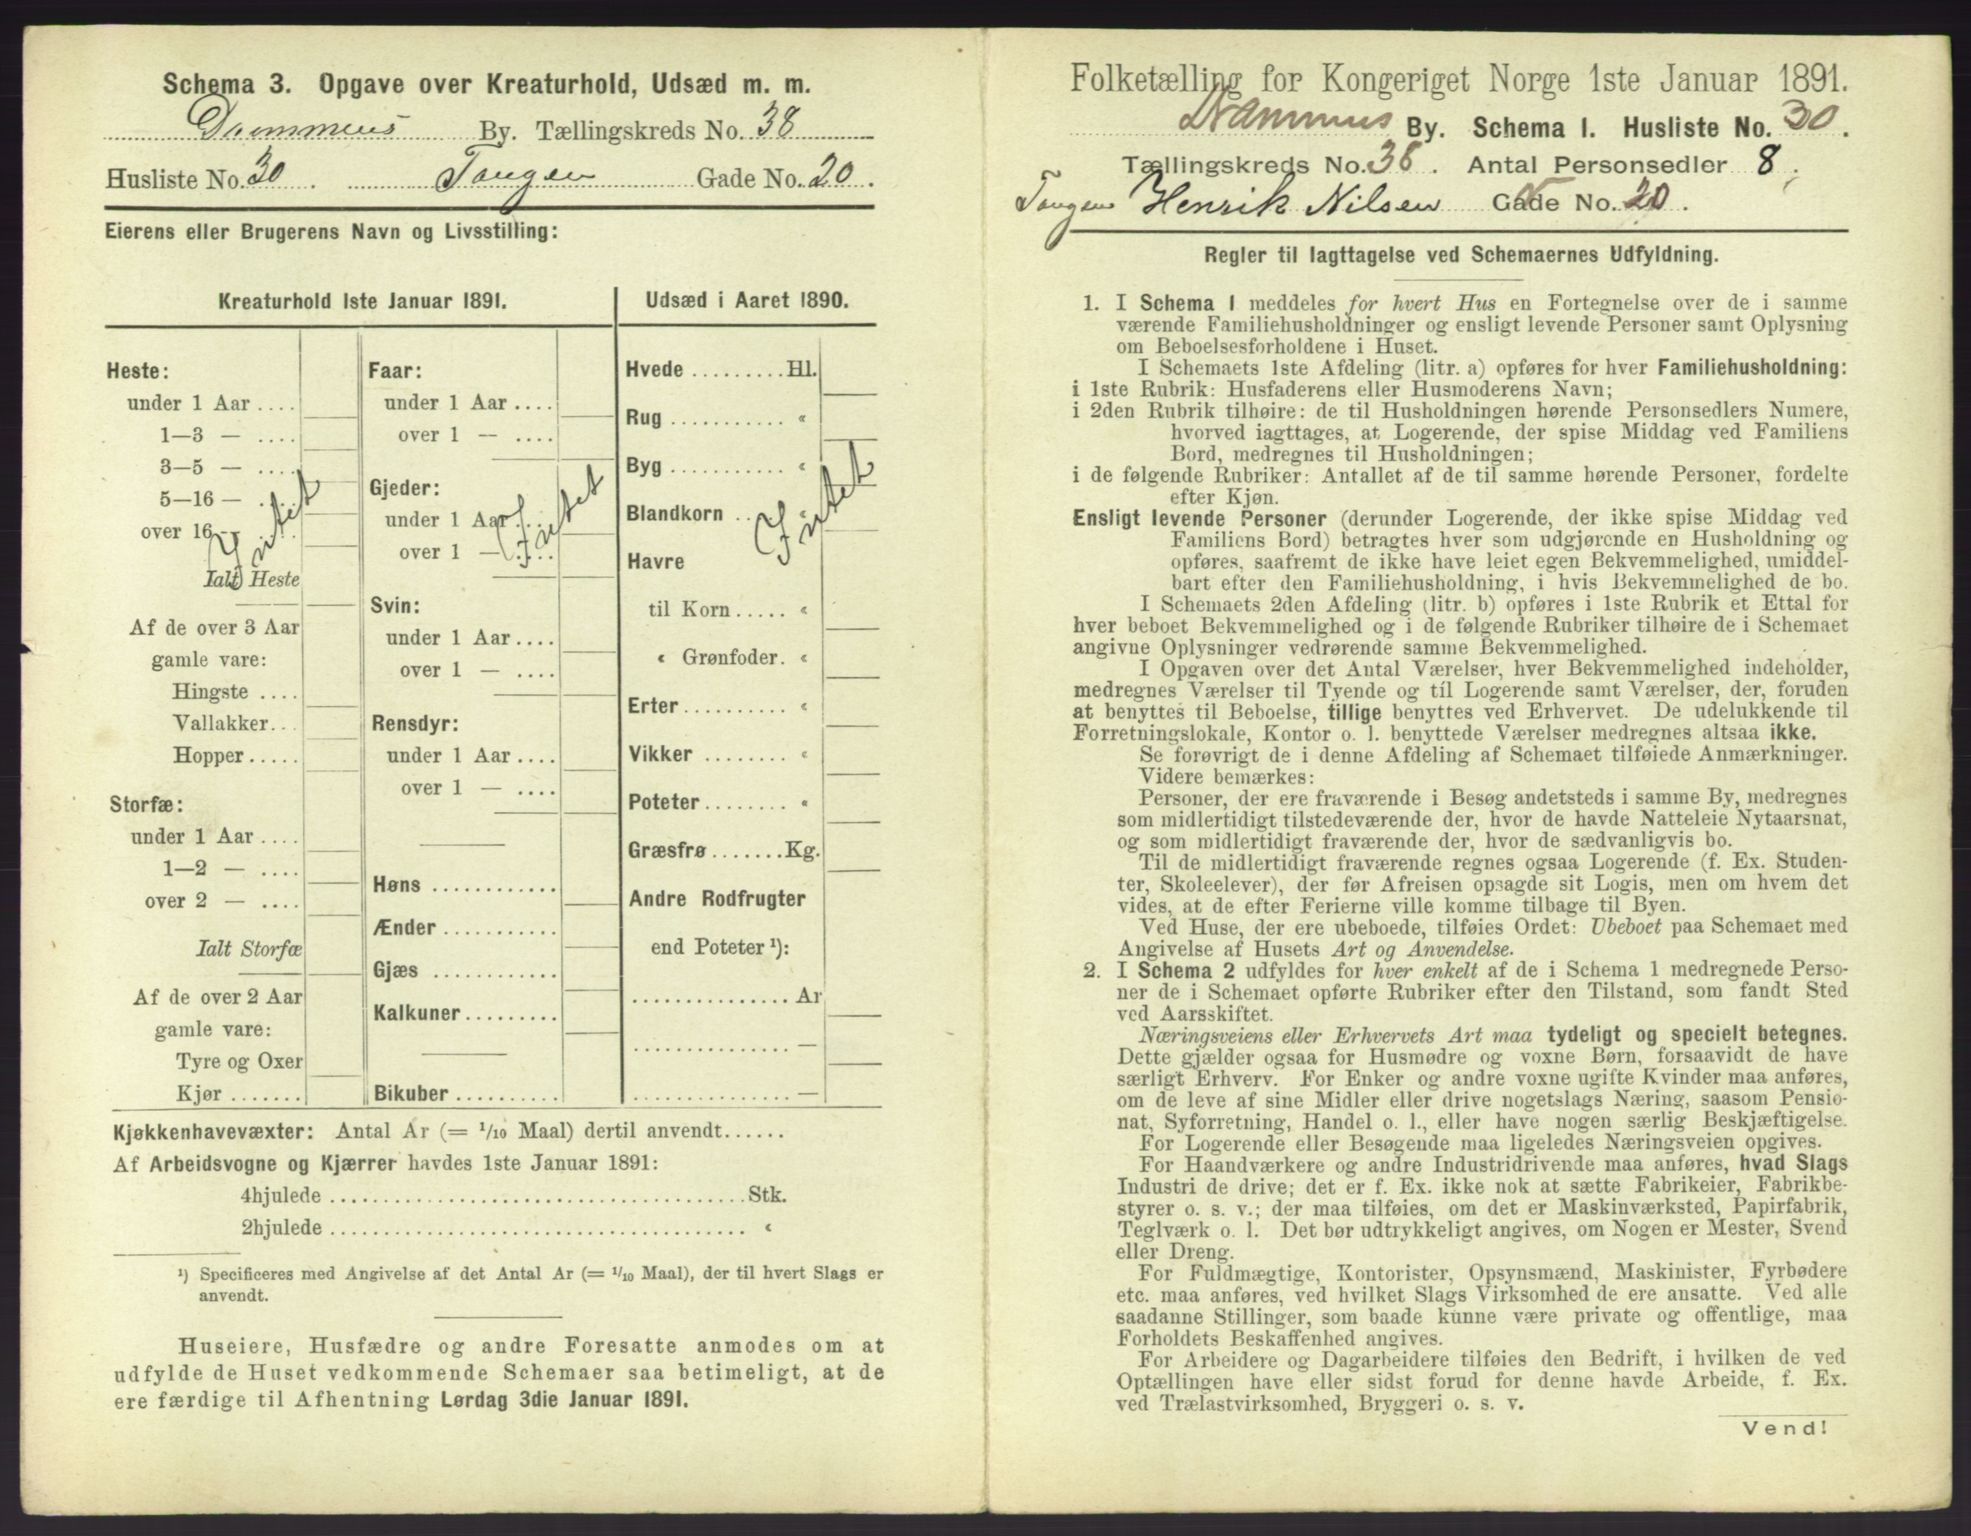 Schema 3. Opgave over Kreaturhold, Udsæd m. m.
Drammens By. Tællingskreds No. 38
Husliste No. 30. Tangen Gade No. 20.
Eierens eller Brugerens Navn og Livsstilling:
Kreaturhold 1ste Januar 1891.
Heste:
under 1 Aar ....
1—3 — ....
3—5 — ....
5—16 — ....
over 16 — ....
Intet
Ialt Heste
Af de over 3 Aar
gamle vare:
Hingste ....
Vallakker...
Hopper .....
Storfæ:
under 1 Aar ....
1—2 — ....
over 2 — ....
Ialt Storfæ
Af de over 2 Aar
gamle vare:
Tyre og Oxer
Kjør .......
Faar:
under 1 Aar ....
over 1 — ....
Gjeder:
under 1 Aar ....
over 1 — ....
Intet
Svin:
under 1 Aar ....
over 1 — ....
Rensdyr:
under 1 Aar ....
over 1 — ....
Høns ............
Ænder ...........
Gjæs ............
Kalkuner.........
Bikuber ..........
Udsæd i Aaret 1890.
Hvede .........Hl.
Rug ........... «
Byg ........... «
Blandkorn ..... «
Intet
Havre
til Korn ..... «
« Grønfoder. «
Erter.......... «
Vikker ........ «
Poteter........ «
Græsfrø .......Kg.
Andre Rodfrugter
end Poteter ¹):
............... Ar
............... —
............... —
Kjøkkenhavevæxter: Antal Ar (= 1/10 Maal) dertil anvendt......
Af Arbeidsvogne og Kjærrer havdes 1ste Januar 1891:
4hjulede ........................................ Stk.
2hjulede ........................................ «
¹) Specificeres med Angivelse af det Antal Ar (= 1/10 Maal), der til hvert Slags er
anvendt.
Huseiere, Husfædre og andre Foresatte anmodes om at
udfylde de Huset vedkommende Schemaer saa betimeligt, at de
ere færdige til Afhentning Lørdag 3die Januar 1891.
Folketælling for Kongeriget Norge 1ste Januar 1891.
Drammens By. Schema 1. Husliste No. 30.
Tællingskreds No. 38. Antal Personsedler 8.
Tangen Henrik Nilsen Gade No. 20.
Regler til Iagttagelse ved Schemaernes Udfyldning.
1. I Schema 1 meddeles for hvert Hus en Fortegnelse over de i samme
værende Familiehusholdninger og ensligt levende Personer samt Oplysning
om Beboelsesforholdene i Huset.
I Schemaets 1ste Afdeling (litr. a) opføres for hver Familiehusholdning:
i 1ste Rubrik: Husfaderens eller Husmoderens Navn;
i 2den Rubrik tilhøire: de til Husholdningen hørende Personsedlers Numere,
hvorved iagttages, at Logerende, der spise Middag ved Familiens
Bord, medregnes til Husholdningen;
i de følgende Rubriker: Antallet af de til samme hørende Personer, fordelte
efter Kjøn.
Ensligt levende Personer (derunder Logerende, der ikke spise Middag ved
Familiens Bord) betragtes hver som udgjørende en Husholdning og
opføres, saafremt de ikke have leiet egen Bekvemmelighed, umiddel-
bart efter den Familiehusholdning, i hvis Bekvemmelighed de bo.
I Schemaets 2den Afdeling (litr. b) opføres i 1ste Rubrik et Ettal for
hver beboet Bekvemmelighed og i de følgende Rubriker tilhøire de i Schemaet
angivne Oplysninger vedrørende samme Bekvemmelighed.
I Opgaven over det Antal Værelser, hver Bekvemmelighed indeholder,
medregnes Værelser til Tyende og til Logerende samt Værelser, der, foruden
at benyttes til Beboelse, tillige benyttes ved Erhvervet. De udelukkende til
Forretningslokale, Kontor o. l. benyttede Værelser medregnes altsaa ikke.
Se forøvrigt de i denne Afdeling af Schemaet tilføiede Anmærkninger.
Videre bemærkes:
Personer, der ere fraværende i Besøg andetsteds i samme By, medregnes
som midlertidigt tilstedeværende der, hvor de havde Natteleie Nytaarsnat,
og som midlertidigt fraværende der, hvor de sædvanligvis bo.
Til de midlertidigt fraværende regnes ogsaa Logerende (f. Ex. Studen-
ter, Skoleelever), der før Afreisen opsagde sit Logis, men om hvem det
vides, at de efter Ferierne ville komme tilbage til Byen.
Ved Huse, der ere ubeboede, tilføies Ordet: Ubeboet paa Schemaet med
Angivelse af Husets Art og Anvendelse.
2. I Schema 2 udfyldes for hver enkelt af de i Schema 1 medregnede Perso-
ner de i Schemaet opførte Rubriker efter den Tilstand, som fandt Sted
ved Aarsskiftet.
Næringsveiens eller Erhvervets Art maa tydeligt og specielt betegnes.
Dette gjælder ogsaa for Husmødre og voxne Børn, forsaavidt de have
særligt Erhverv. For Enker og andre voxne ugifte Kvinder maa anføres,
om de leve af sine Midler eller drive nogetslags Næring, saasom Pensio-
nat, Syforretning, Handel o. l., eller have nogen særlig Beskjæftigelse.
For Logerende eller Besøgende maa ligeledes Næringsveien opgives.
For Haandværkere og andre Industridrivende maa anføres, hvad Slags
Industri de drive; det er f. Ex. ikke nok at sætte Fabrikeier, Fabrikbe-
styrer o. s. v.; der maa tilføies, om det er Maskinværksted, Papirfabrik,
Teglværk o. l. Det bør udtrykkeligt angives, om Nogen er Mester, Svend
eller Dreng.
For Fuldmægtige, Kontorister, Opsynsmænd, Maskinister, Fyrbødere
etc. maa anføres, ved hvilket Slags Virksomhed de ere ansatte. Ved alle
saadanne Stillinger, som baade kunne være private og offentlige, maa
Forholdets Beskaffenhed angives.
For Arbeidere og Dagarbeidere tilføies den Bedrift, i hvilken de ved
Optællingen have eller sidst forud for denne havde Arbeide, f. Ex.
ved Trælastvirksomhed, Bryggeri o. s. v.
Vend!